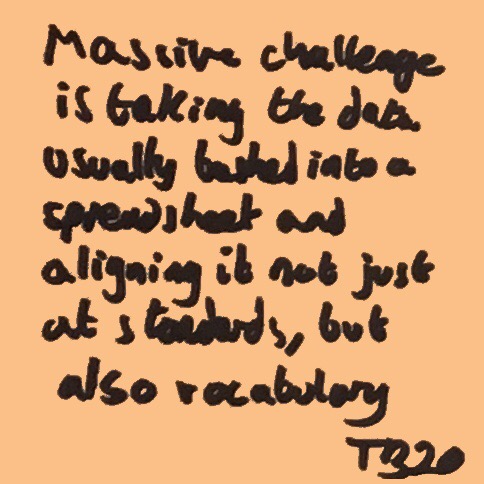 Massive challenge
is taking the data
usually bashed into a
spreadsheet and
aligning it not just
at standards, but
also vocabulary
TB20